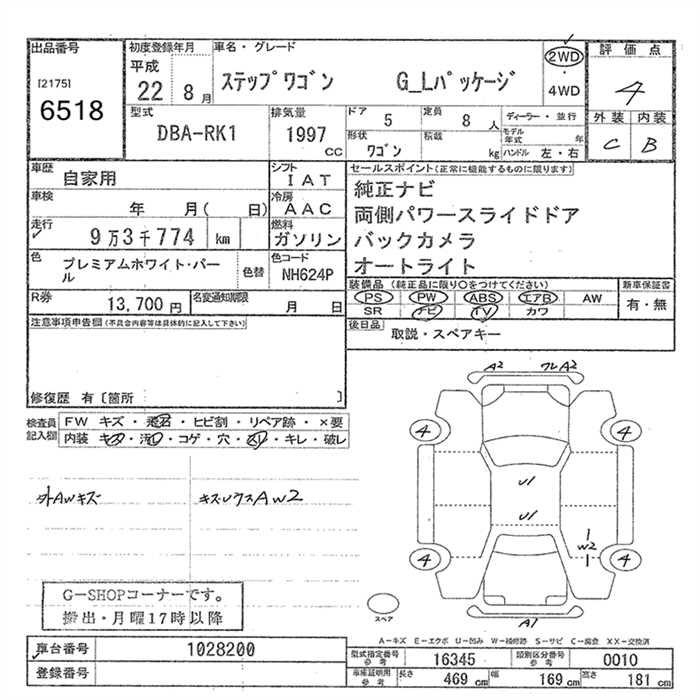 出品番号
[2175]
6518
初度登録年月
平成
22 8 月
車名・グレード
ステップワゴン G_Lパッケージ
2WD
・
4WD
評価点
4
外装 内装
C B
型式
DBA-RK1
排気量
1997
CC
ドア
5
定員
8 人
ディーラー・並行
形状
ワゴン
積載
kg
モデル年式 年
ハンドル 左・右
車歴
自家用
シフト
IAT
車検
年 月( 日)
冷房
AAC
走行
9万3千774 km
燃料
ガソリン
色
プレミアムホワイト・パール
色替
色コード
NH624P
R券
13,700 円
名変通知期限
月 日
セールスポイント(正常に機能するものに限ります)
純正ナビ
両側パワースライドドア
バックカメラ
オートライト
装備品 (純正品に限り○をつけてください)
PS PW ABS エアB AW
SR ナビ TV カワ
新車保証書
有・無
後日品
取説・スペアキー
注意事項申告欄(不具合内容等は具体的に記入して下さい)
修復歴 有〔箇所 〕
検査員
記入欄
FW キズ・飛石・ヒビ割・リペア跡・×要
内装 キズ・汚レ・コゲ・穴・スレ・キレ・破レ
外AWキズ
A2 ワレA2
4 4
U1
U1
W2
4 4
スペア
A1
G-SHOPコーナーです。
搬出・月曜17時以降
A-キズ E-エクボ U-凹み W-補修跡 S-サビ C-腐食 XX-交換済
車台番号
1028200
登録番号
型式指定番号
参考
16345
類別区分番号
参考
0010
車庫証明用
参考
長さ
469 cm
幅
169 cm
高さ
181 cm